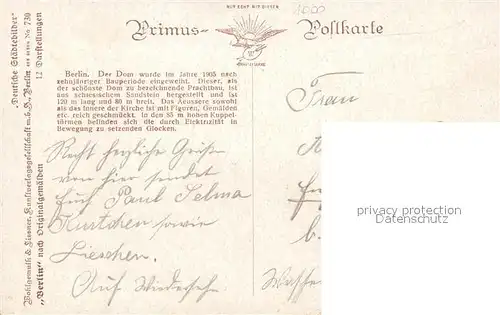 NUR ECHT MIT DIESEM
Primus-Postkarte
1000
Berlin. Der Dom wurde im Jahre 1905 nach
zehnjähriger Bauperiode eingeweiht. Dieser, als
der schönste Dom zu bezeichnende Prachtbau, ist
aus schlesischem Sandstein hergestellt und ist
120 m lang und 80 m breit. Das Äussere sowohl
als das Innere der Kirche ist mit Figuren, Gemälden
etc. reich geschmückt. In den 85 m hohen Kuppel-
türmen befinden sich die durch Elektrizität in
Bewegung zu setzenden Glocken.
Recht herzliche Grüße
von hier sendet
Euch Paul Selma
Kurtchen sowie
Lieschen.
Auf Wiedersehn
Frau
privacy protection
„Deutsche Städtebilder“
Wohlgemuth & Lissner, Kunstverlagsgesellschaft m. b. H., Berlin No. 730
„Berlin“ nach Originalgemälden 12 Darstellungen